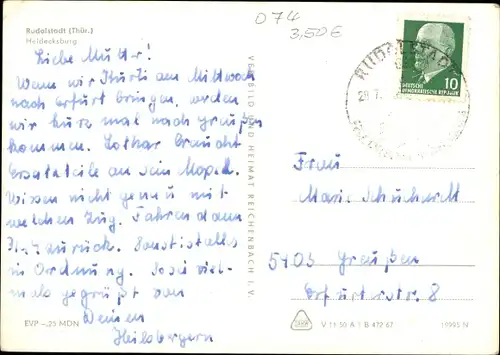 Rudolstadt (Thür.)
Heidecksburg
074
3,50€
Liebe Mutter!
Wenn wir am Mittwoch
nach erfurt bringen, werden
wir kurz mal nach greußen
kommen. Lothar braucht
Ersatzteile an sein Moped.
Wissen nicht genau mit
welchen Zug. Fahren dann
zurück. Sonst ist alles
in Ordnung. Seid viel-
mals gegrüßt von
Deinen
Heilsbergern
EVP -,25 MDN
VERBILD UND HEIMAT REICHENBACH I. V.
RUDOLSTADT
10
DEUTSCHE
DEMOKRATISCHE REPUBLIK
Frau
Marie Schuchardt
5403 Greußen
Erfurterstr. 8
V 11 50 A 1 B 472 67